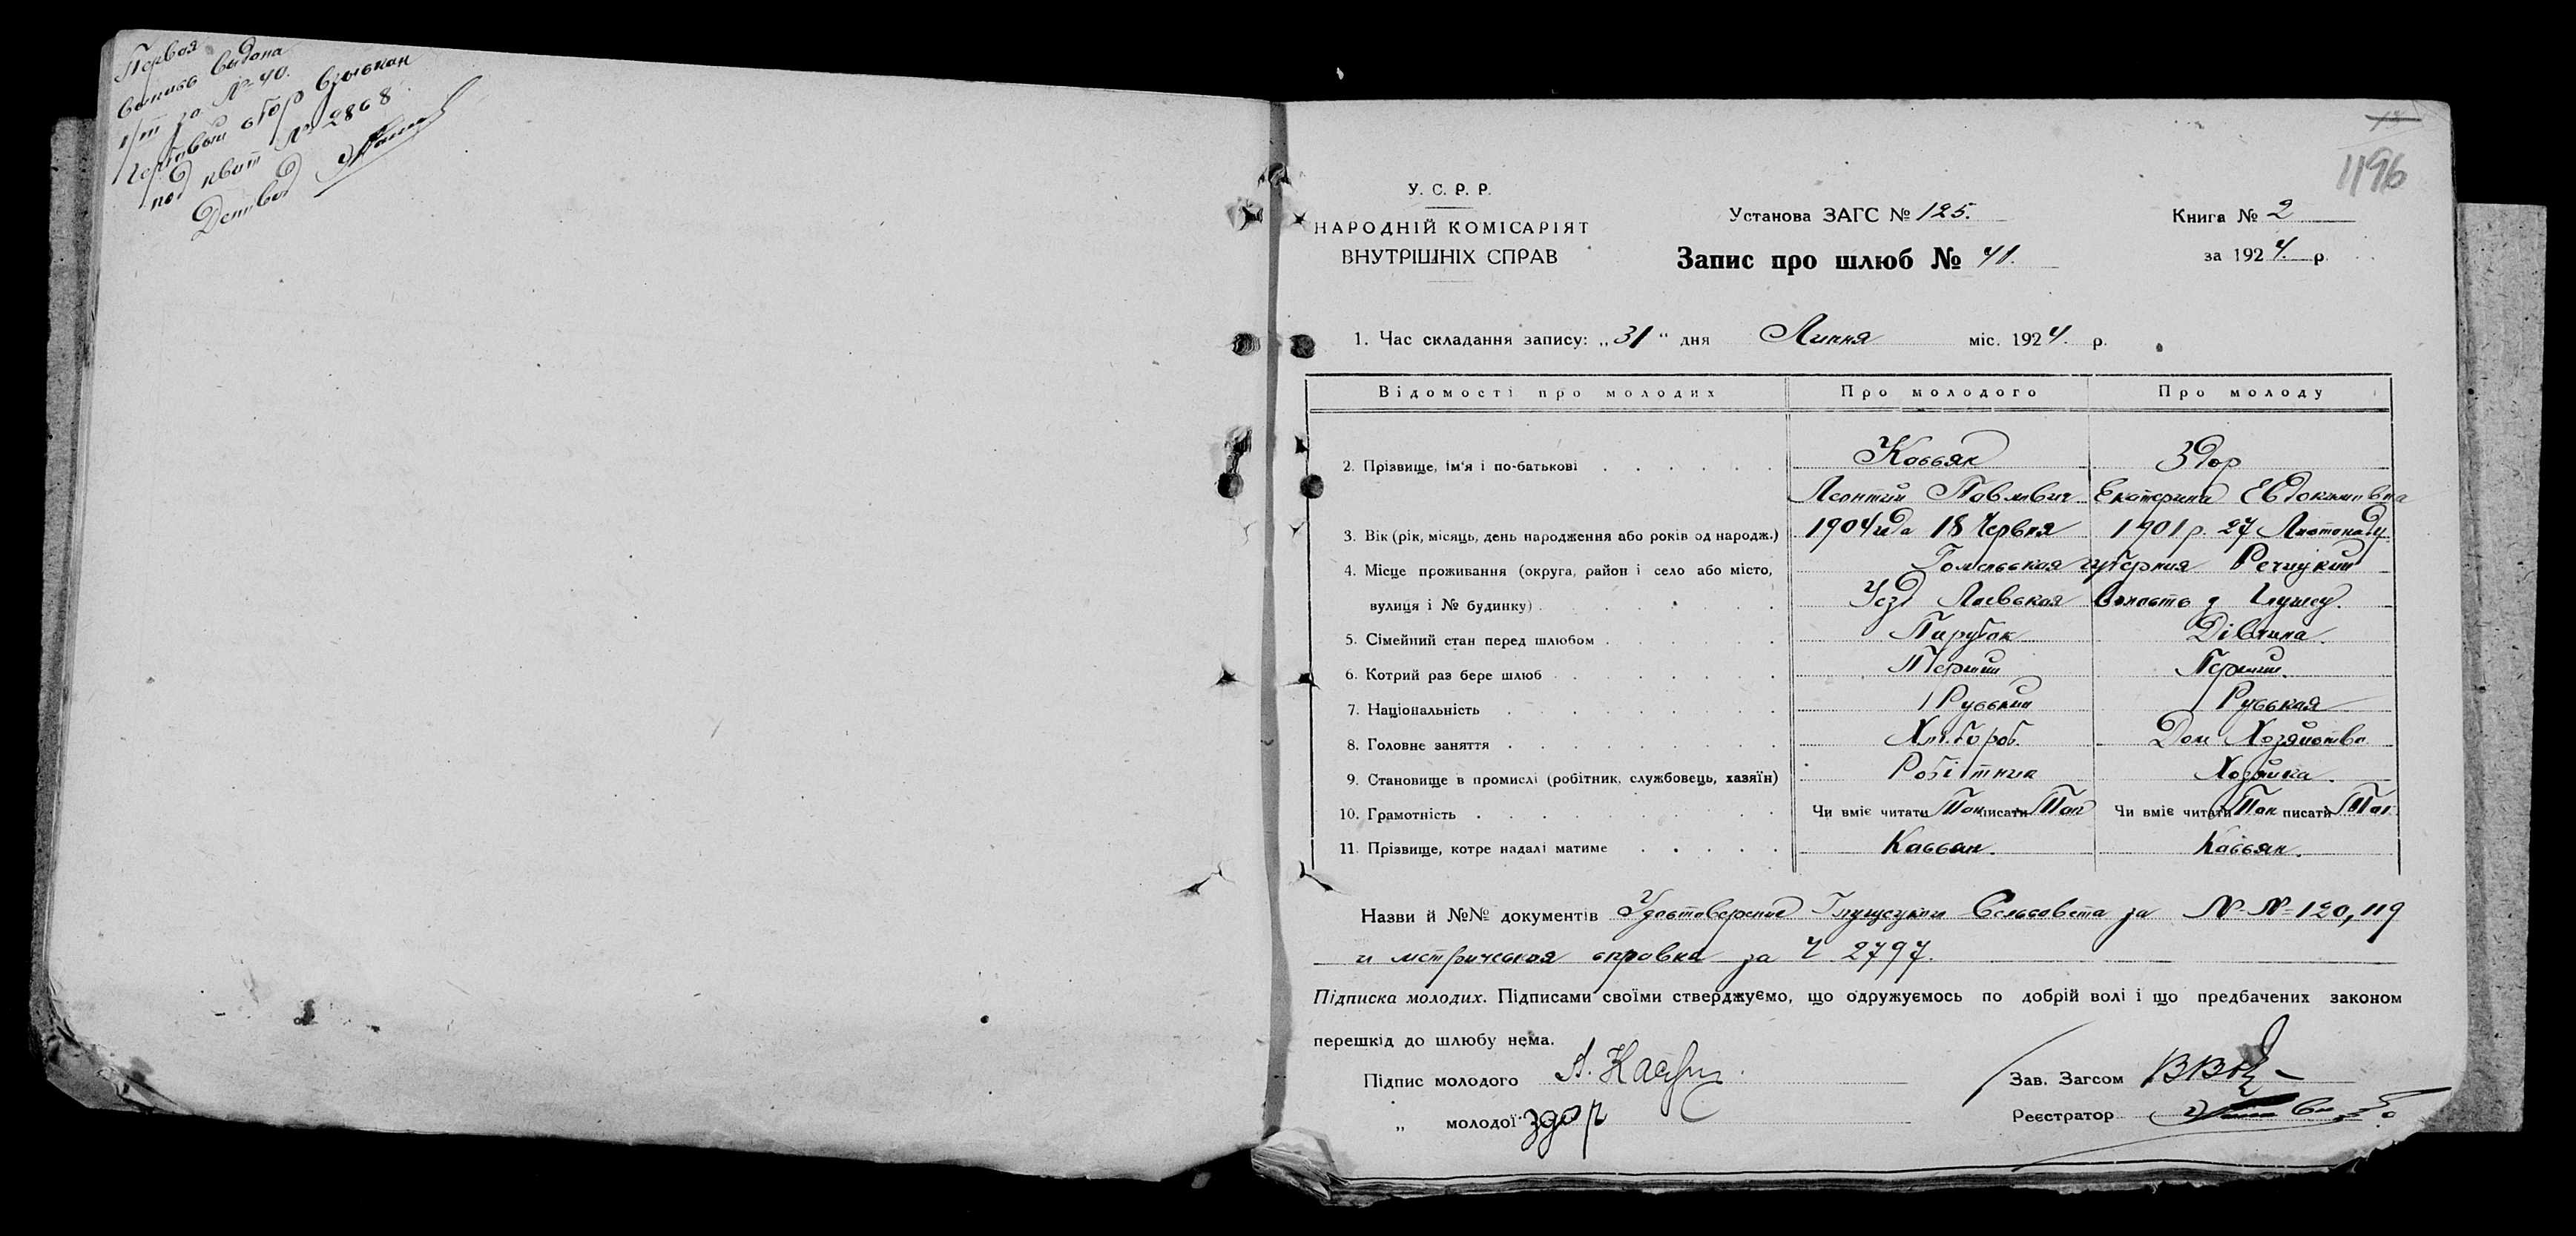 Первая
выпись выдана
за № 40.
Гербовый сбор взыскан
под квит № 2868.
1196
У. С. Р. Р.
НАРОДНІЙ КОМІСАРІЯТ
ВНУТРІШНІХ СПРАВ
Установа ЗАГС № 125.
Запис про шлюб № 41.
Книга № 2
за 1924. р.
1. Час складання запису: „31“ дня Липня міс. 1924. р.
Відомості про молодих Про молодого Про молоду
2. Прізвище, ім'я і по-батькові Кассян Здор
Леонтий Павлович Екатерина Евдокимовна
3. Вік (рік, місяць, день народження або років од народж.) 1904 года 18 Червня 1901 р. 27 Листопаду
4. Місце проживання (округа, район і село або місто, Гомельская губерния Речицкий
вулиця і № будинку) Уезд Лоевская Волость д
5. Сімейний стан перед шлюбом Парубок Дівчина.
6. Котрий раз бере шлюб Перший Перший.
7. Національність Русский Русская
8. Головне заняття Хлібороб. Дом Хозяйство
9. Становище в промислі (робітник, службовець, хазяїн) Робітник Хозяйка.
10. Грамотність Чи вміє читати Так писати Так Чи вміє читати Так писати Так
11. Прізвище, котре надалі матиме Кассян. Кассян.
Назви й №№ документів Удостоверение Сельсовета за №-№= 120, 119
и метрическая справка за Ч 2797.
Підписка молодих. Підписами своїми стверджуємо, що одружуємось по добрій волі і що предбачених законом
перешкід до шлюбу нема.
Підпис молодого Л. Касян
„ молодої здор
Зав. Загсом
Реєстратор